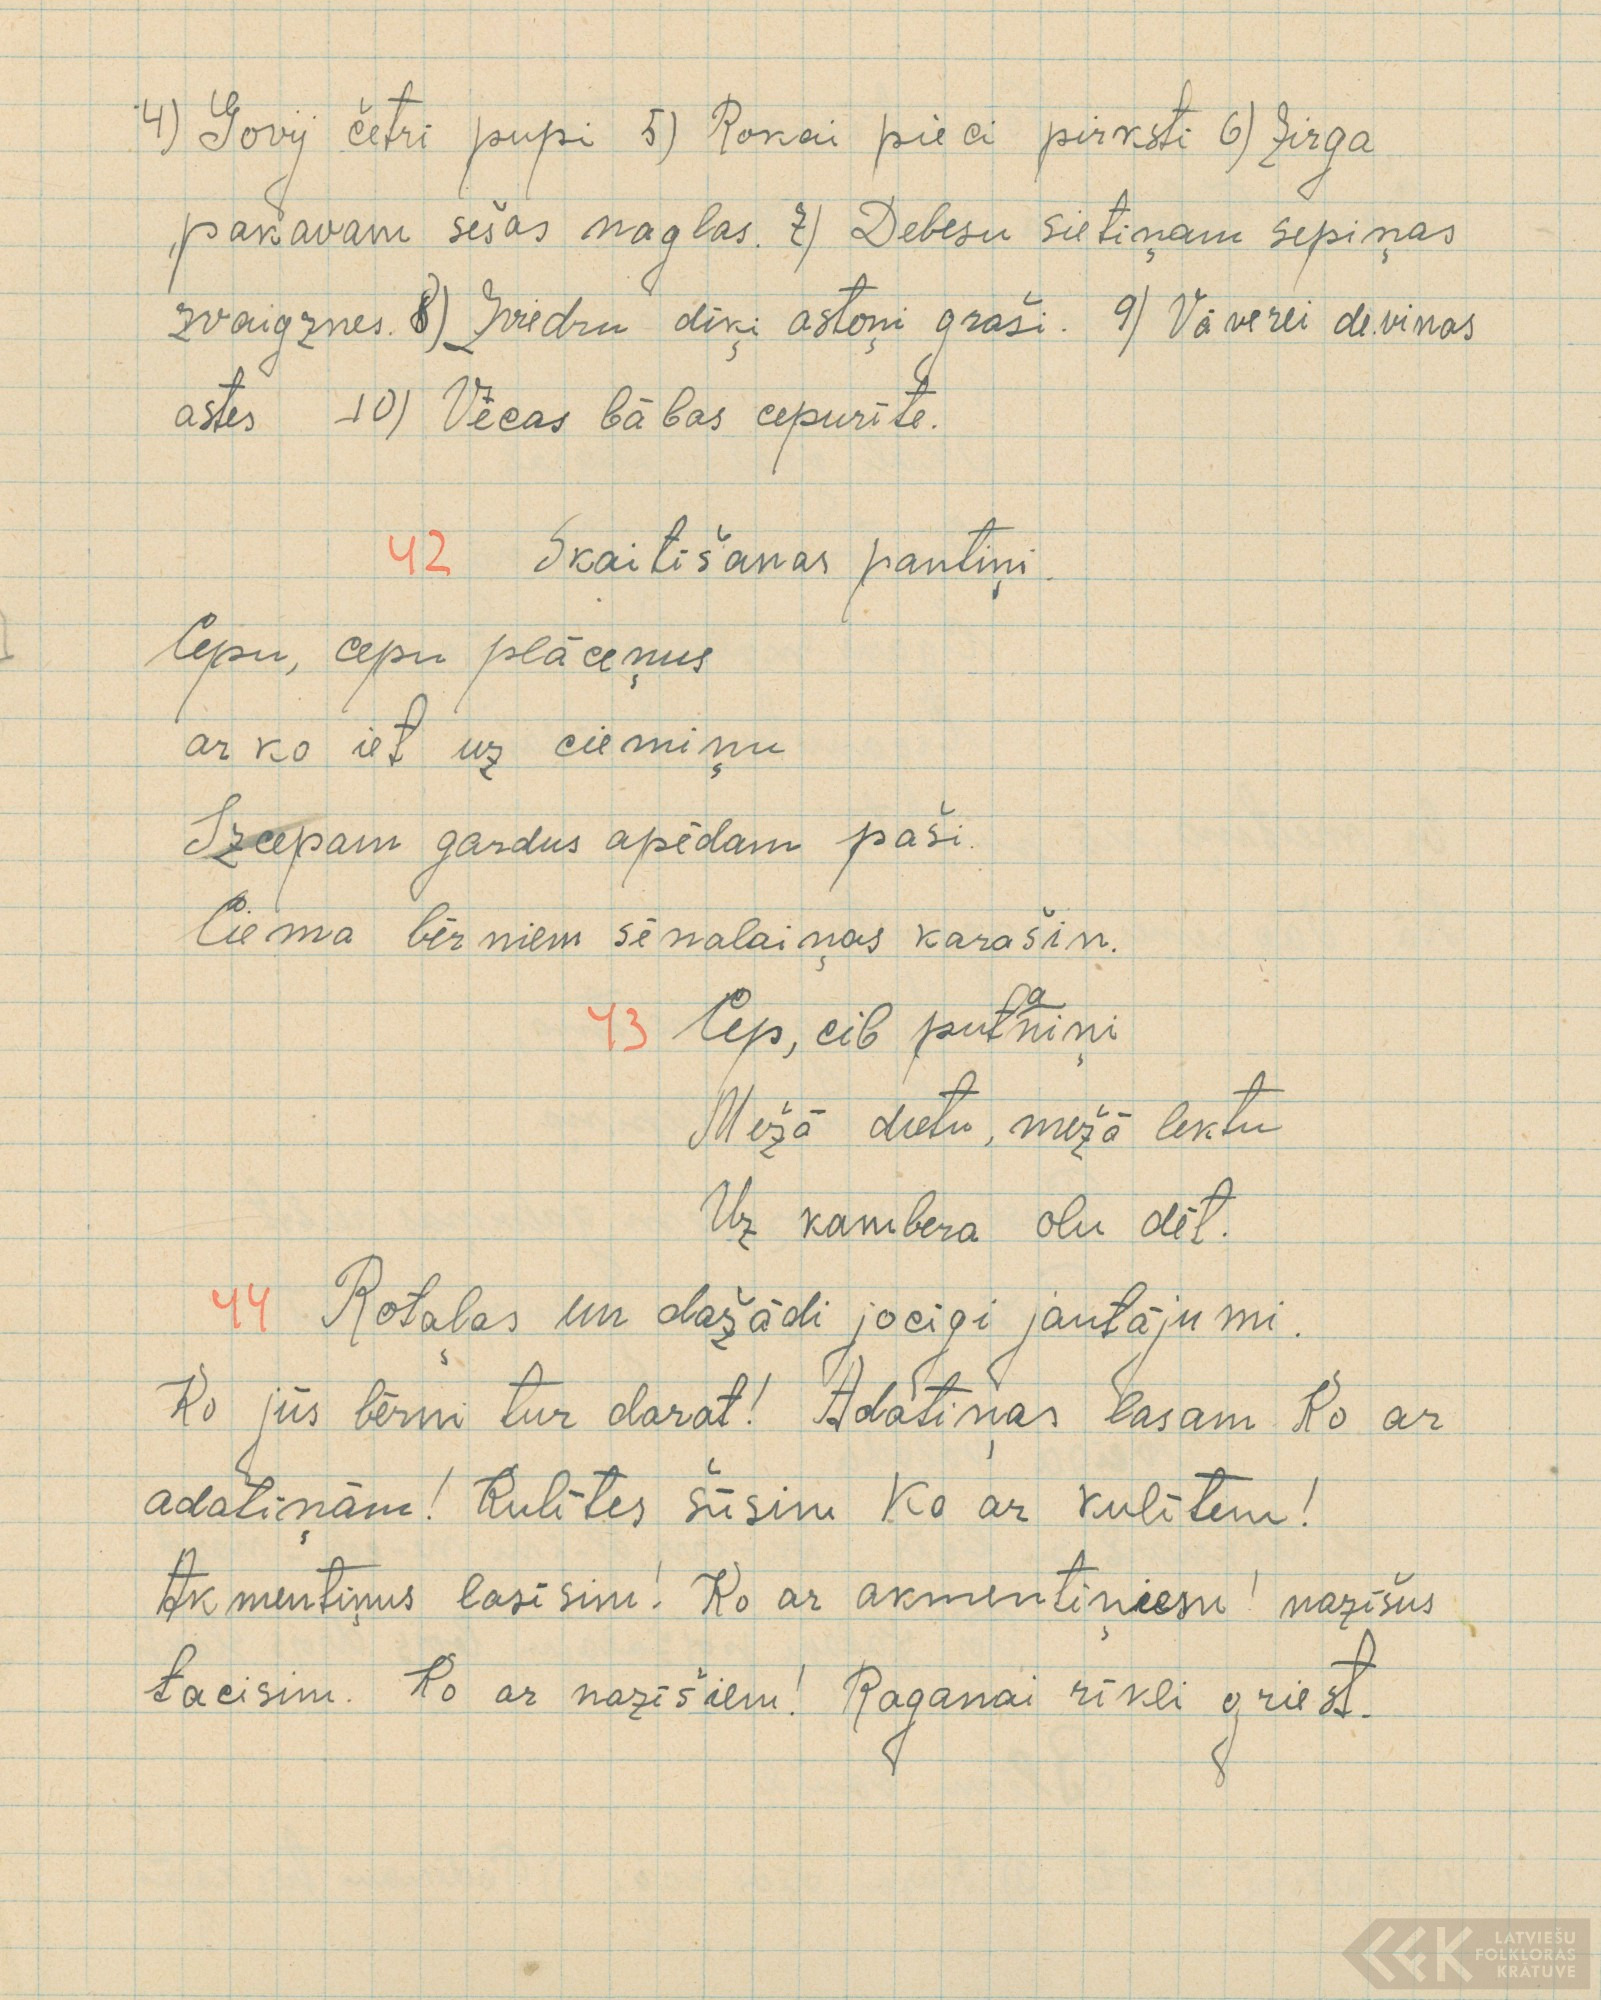 4) Govij četri pupi 5) Rokai pieci pirksti 6) Zirga
pakavam sešas naglas. 7) Debesu sietiņam sepiņas
zvaigznes. 8) Zviedru dīķi astoņi graši. 9) Vāverei devinas
astes 10) Vēcas bābas cepurīte.
42 Skaitīšanas pantiņi.
Cepu, cepu plāceņus
ar ko iet uz ciemiņu
Izcepam gardus apēdam paši.
Ciema bērniem sēnalaiņas karašin.
43 Cep, cib putaniņi
Mežā dietu, mežā lektu
Uz kambera olu dēt.
44 Rotaļas un dažādi jocīgi jautājumi.
Ko jūs bērni tur darat! Adatiņas lasam Ko ar
adatiņām! Kulītes šūsim Ko ar kulītem!
Akmentiņus lasīsim! Ko ar akmentiņiesu! nazīšus
tacisim. Ko ar nazīšiem! Raganai rīkli griest.
LATVIEŠU
FOLKLORAS
KRĀTUVE